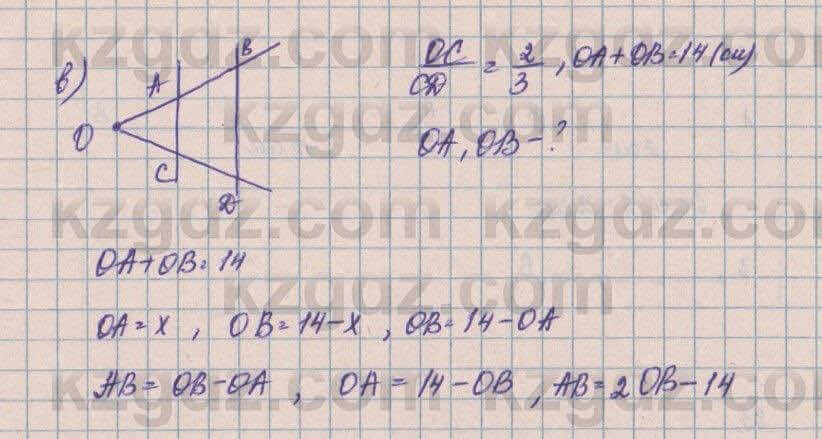 в)
A
B
O
C
D
OC/CD = 2/3, OA+OB=14(см)
OA, OB-?
OA+OB=14
OA=x, OB=14-x, OB=14-OA
AB=OB-OA, OA=14-OB, AB=2OB-14
kzgdz.com kzgdz.com
kzgdz.com
kzgdz.com kzgdz.com
kzgdz.com
kzgdz.com kzgdz.com